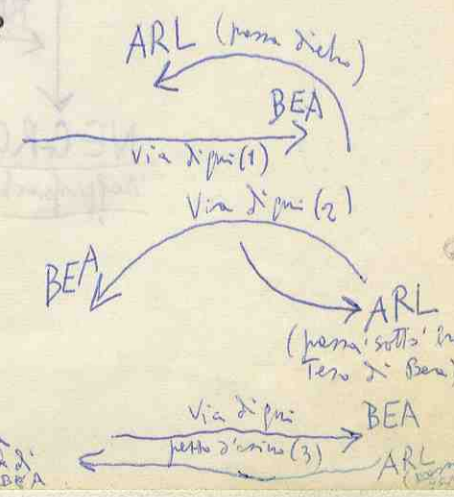 ARL (passa dietro)
BEA
Via di qui (1)
Via di qui (2)
BEA
ARL
(passa sotto
Teso di Bea)
Via di qui
BEA
petto d'asino (3)
ARL
di
BEA